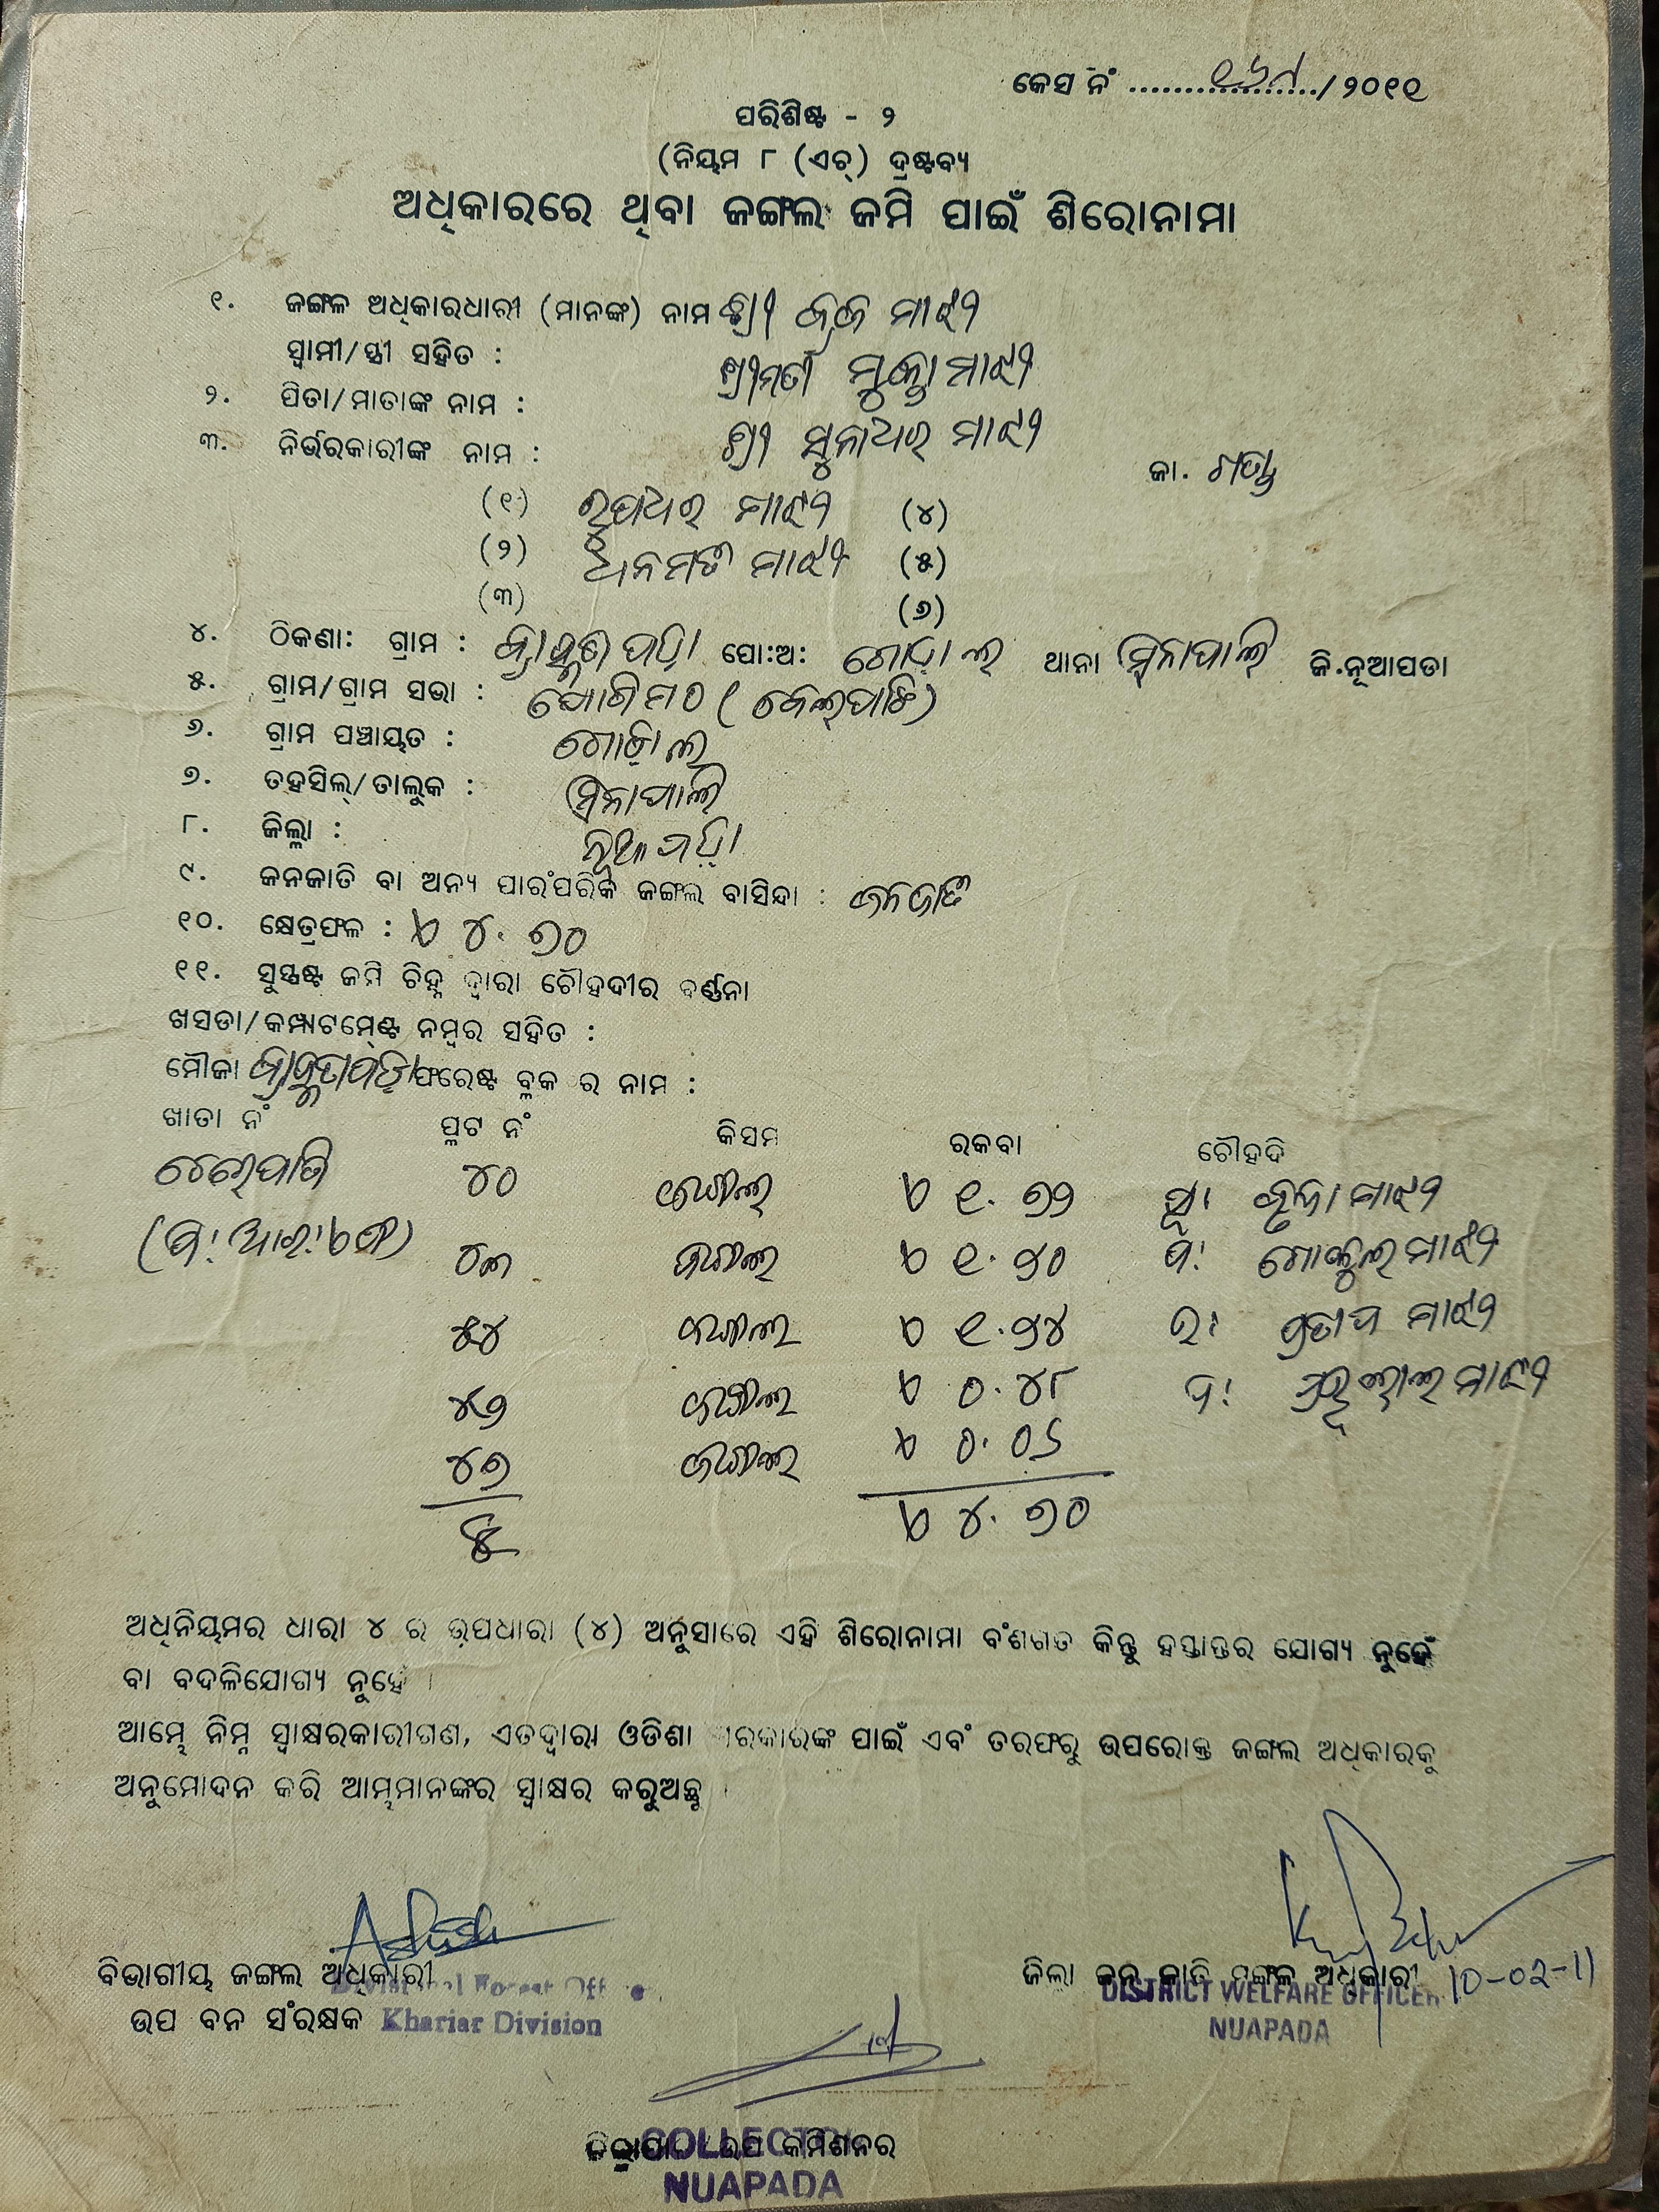 କେସ ନଂ ................./୨୦୧୧
ପରିଶିଷ୍ଟ - ୨
(ନିୟମ ୮ (ଏଚ୍) ଦ୍ରଷ୍ଟବ୍ୟ
ଅଧିକାରରେ ଥିବା ଜଙ୍ଗଲ ଜମି ପାଇଁ ଶିରୋନାମା
୧. ଜଙ୍ଗଲ ଅଧିକାରଧାରୀ (ମାନଙ୍କ) ନାମ ଶ୍ରୀ ମାଝୀ
ସ୍ଵାମୀ/ସ୍ତ୍ରୀ ସହିତ : ଶ୍ରୀମତୀ ମୁକ୍ତା ମାଝୀ
୨. ପିତା/ମାତାଙ୍କ ନାମ : ଶ୍ରୀ ସୁନାଧର ମାଝୀ
୩. ନିର୍ଭରକାରୀଙ୍କ ନାମ : ଜା. ଗଣ୍ଡ
(୧) ରୂପଧର ମାଝୀ (୪)
(୨) ଧନମତି ମାଝୀ (୫)
(୩) (୬)
୪. ଠିକଣା: ଗ୍ରାମ : ବ୍ରାହ୍ମଣପଡ଼ା ପୋ:ଅ: ଥାନା ସିନାପାଲି ଜି.ନୂଆପଡା
୫. ଗ୍ରାମ/ଗ୍ରାମ ସଭା : ଯୋଗିମଠ
୬. ଗ୍ରାମ ପଞ୍ଚାୟତ :
୭. ତହସିଲ୍/ତାଲୁକ : ସିନାପାଲି
୮. ଜିଲ୍ଲା : ନୂଆପଡ଼ା
୯. ଜନଜାତି ବା ଅନ୍ୟ ପାରଂପରିକ ଜଙ୍ଗଲ ବାସିନ୍ଦା : ଜନଜାତି
୧୦. କ୍ଷେତ୍ରଫଳ : ୪.୭୦
୧୧. ସୁସ୍ପଷ୍ଟ ଜମି ଚିହ୍ନ ଦ୍ଵାରା ଚୌହଦୀର ବର୍ଣ୍ଣନା
ଖସଡା/କମ୍ପାଟମେଣ୍ଟ ନମ୍ବର ସହିତ :
ମୌଜା ବ୍ରାହ୍ମଣପଡ଼ା ଫରେଷ୍ଟ ବ୍ଲକ ର ନାମ :
ଖାତା ନଂ ପ୍ଲଟ ନଂ କିସମ ରକବା ଚୌହଦି
୪୦ ଜଙ୍ଗଲ ୧.୭୨ ମାଝୀ
ଜଙ୍ଗଲ ୧.୨୦ ଗୋକୁଲ ମାଝୀ
୫୪ ଜଙ୍ଗଲ ୧.୨୪ ଉ: ପ୍ରତାପ ମାଝୀ
ଜଙ୍ଗଲ ୦.୪୮ ଦ: ମାଝୀ
୪୭ ଜଙ୍ଗଲ ୦.୦୬
୫ ୪.୭୦
ଅଧିନିୟମର ଧାରା ୪ ର ଉପଧାରା (୪) ଅନୁସାରେ ଏହି ଶିରୋନାମା ବଂଶଗତ କିନ୍ତୁ ହସ୍ତାନ୍ତର ଯୋଗ୍ୟ ନୁହେଁ
ବା ବଦଳିଯୋଗ୍ୟ ନୁହେଁ ।
ଆମ୍ଭେ ନିମ୍ନ ସ୍ଵାକ୍ଷରକାରୀଗଣ, ଏତଦ୍ଵାରା ଓଡିଶା ସରକାରଙ୍କ ପାଇଁ ଏବଂ ତରଫରୁ ଉପରୋକ୍ତ ଜଙ୍ଗଲ ଅଧିକାରକୁ
ଅନୁମୋଦନ କରି ଆମ୍ଭମାନଙ୍କର ସ୍ଵାକ୍ଷର କରୁଅଛୁ ।
ବିଭାଗୀୟ ଜଙ୍ଗଲ ଅଧିକାରୀ
Divisional Forest Officer
ଉପ ବନ ସଂରକ୍ଷକ Khariar Division
ଜିଲା ଜନ ଜାତି ମଙ୍ଗଳ ଅଧିକାରୀ 10-02-11
DISTRICT WELFARE OFFICER
NUAPADA
ଜିଲ୍ଲାପାଳ ଉପ କମିଶନର
COLLECTOR
NUAPADA